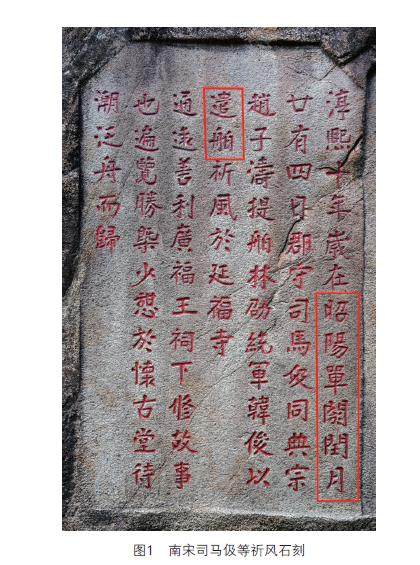 淳熙十年歲在昭陽單閼閏月
廿有四日郡守司馬伋同典宗
趙子濤提舶林劭統軍韓俊以
遣舶祈風於延福寺
通遠善利廣福王祠下修故事
也遍覽勝槩少憩於懷古堂待
潮泛舟而歸
图1 南宋司马伋等祈风石刻